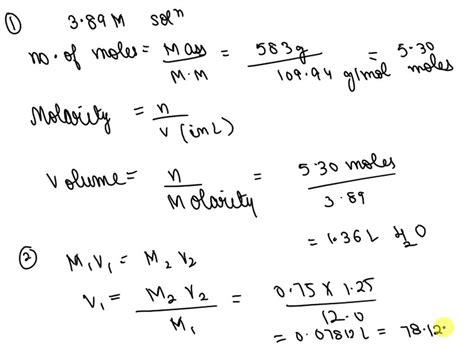 ① 3.89 M solⁿ
no. of moles = Mass / M.M = 583g / 109.94 g/mol = 5.30 moles
Molarity = n / V (in L)
Volume = n / Molarity = 5.30 moles / 3.89
= 1.36 L H2O
② M₁V₁ = M₂V₂
V₁ = M₂V₂ / M₁ = 0.75 X 1.25 / 12.0
= 0.07812 L = 78.12